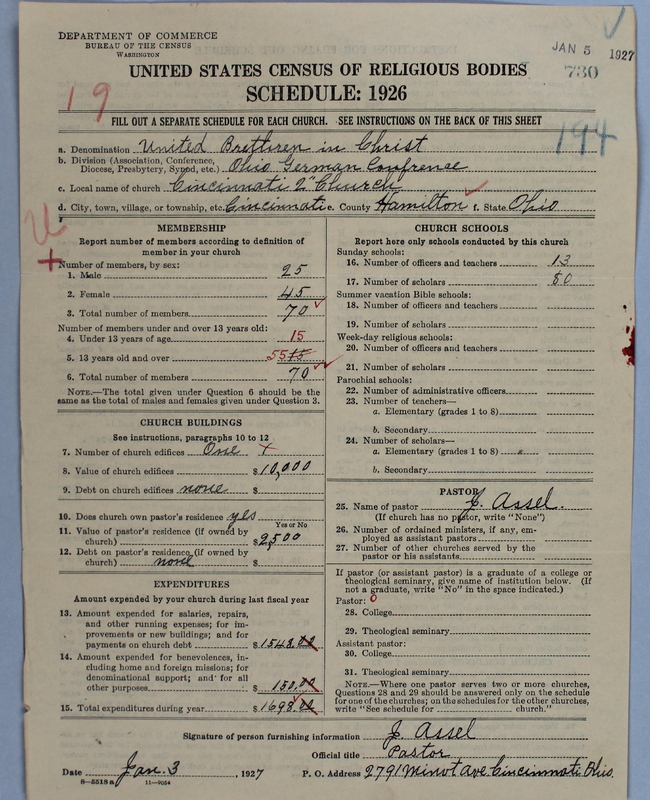 DEPARTMENT OF COMMERCE
BUREAU OF THE CENSUS
WASHINGTON
JAN 5 1927
730
UNITED STATES CENSUS OF RELIGIOUS BODIES
SCHEDULE: 1926
19
FILL OUT A SEPARATE SCHEDULE FOR EACH CHURCH. SEE INSTRUCTIONS ON THE BACK OF THIS SHEET
194
a. Denomination United Brethren in Christ
b. Division (Association, Conference, Diocese, Presbytery, Synod, etc.) Ohio German Confrense
c. Local name of church Cincinnati 2" Church
d. City, town, village, or township, etc. Cincinnati e. County Hamilton f. State Ohio
MEMBERSHIP
Report number of members according to definition of
member in your church
Number of members, by sex:
1. Male 25
2. Female 45
3. Total number of members 70
Number of members under and over 13 years old:
4. Under 13 years of age 15
5. 13 years old and over 55 15
6. Total number of members 70
NOTE.—The total given under Question 6 should be
same as the total of males and females given under Question 3.
CHURCH BUILDINGS
See instructions, paragraphs 10 to 12
7. Number of church edifices One
8. Value of church edifices $10,000
9. Debt on church edifices none $
10. Does church own pastor's residence yes
Yes or No
11. Value of pastor's residence (if owned by
church) $2,500
12. Debt on pastor's residence (if owned by
church) none $
EXPENDITURES
Amount expended by your church during last fiscal year
13. Amount expended for salaries, repairs,
and other running expenses; for im-
provements or new buildings; and for
payments on church debt $1548.00
14. Amount expended for benevolences, in-
cluding home and foreign missions; for
denominational support; and for all
other purposes $150.00
15. Total expenditures during year $1698.00
CHURCH SCHOOLS
Report here only schools conducted by this church
Sunday schools:
16. Number of officers and teachers 13
17. Number of scholars 80
Summer vacation Bible schools:
18. Number of officers and teachers
19. Number of scholars
Week-day religious schools:
20. Number of officers and teachers
21. Number of scholars
Parochial schools:
22. Number of administrative officers
23. Number of teachers—
a. Elementary (grades 1 to 8)
b. Secondary
24. Number of scholars—
a. Elementary (grades 1 to 8)
b. Secondary
PASTOR
25. Name of pastor J. Assel.
(If church has no pastor, write "None")
26. Number of ordained ministers, if any, em-
ployed as assistant pastors
27. Number of other churches served by the
pastor or his assistants
If pastor (or assistant pastor) is a graduate of a college or
theological seminary, give name of institution below. (If
not a graduate, write "No" in the space indicated.)
Pastor: 0
28. College
29. Theological seminary
Assistant pastor:
30. College
31. Theological seminary
NOTE.—Where one pastor serves two or more churches,
Questions 28 and 29 should be answered only on the schedule
for one of the churches; on the schedules for the other churches,
write "See schedule for church."
Signature of person furnishing information J. Assel
Official title Pastor
Date Jan. 3, 1927 P. O. Address 2791 Minot Ave Cincinnati Ohio.
8—5518a 11—9054